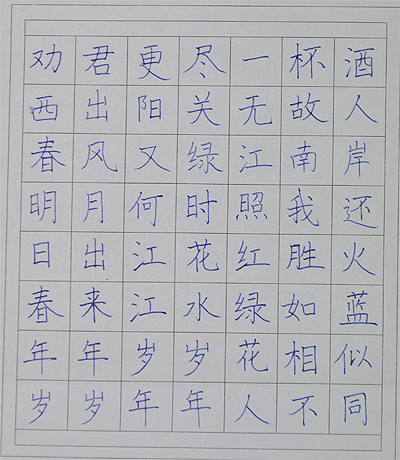 劝君更尽一杯酒
西出阳关无故人
春风又绿江南岸
明月何时照我还
日出江花红胜火
春来江水绿如蓝
年年岁岁花相似
岁岁年年人不同